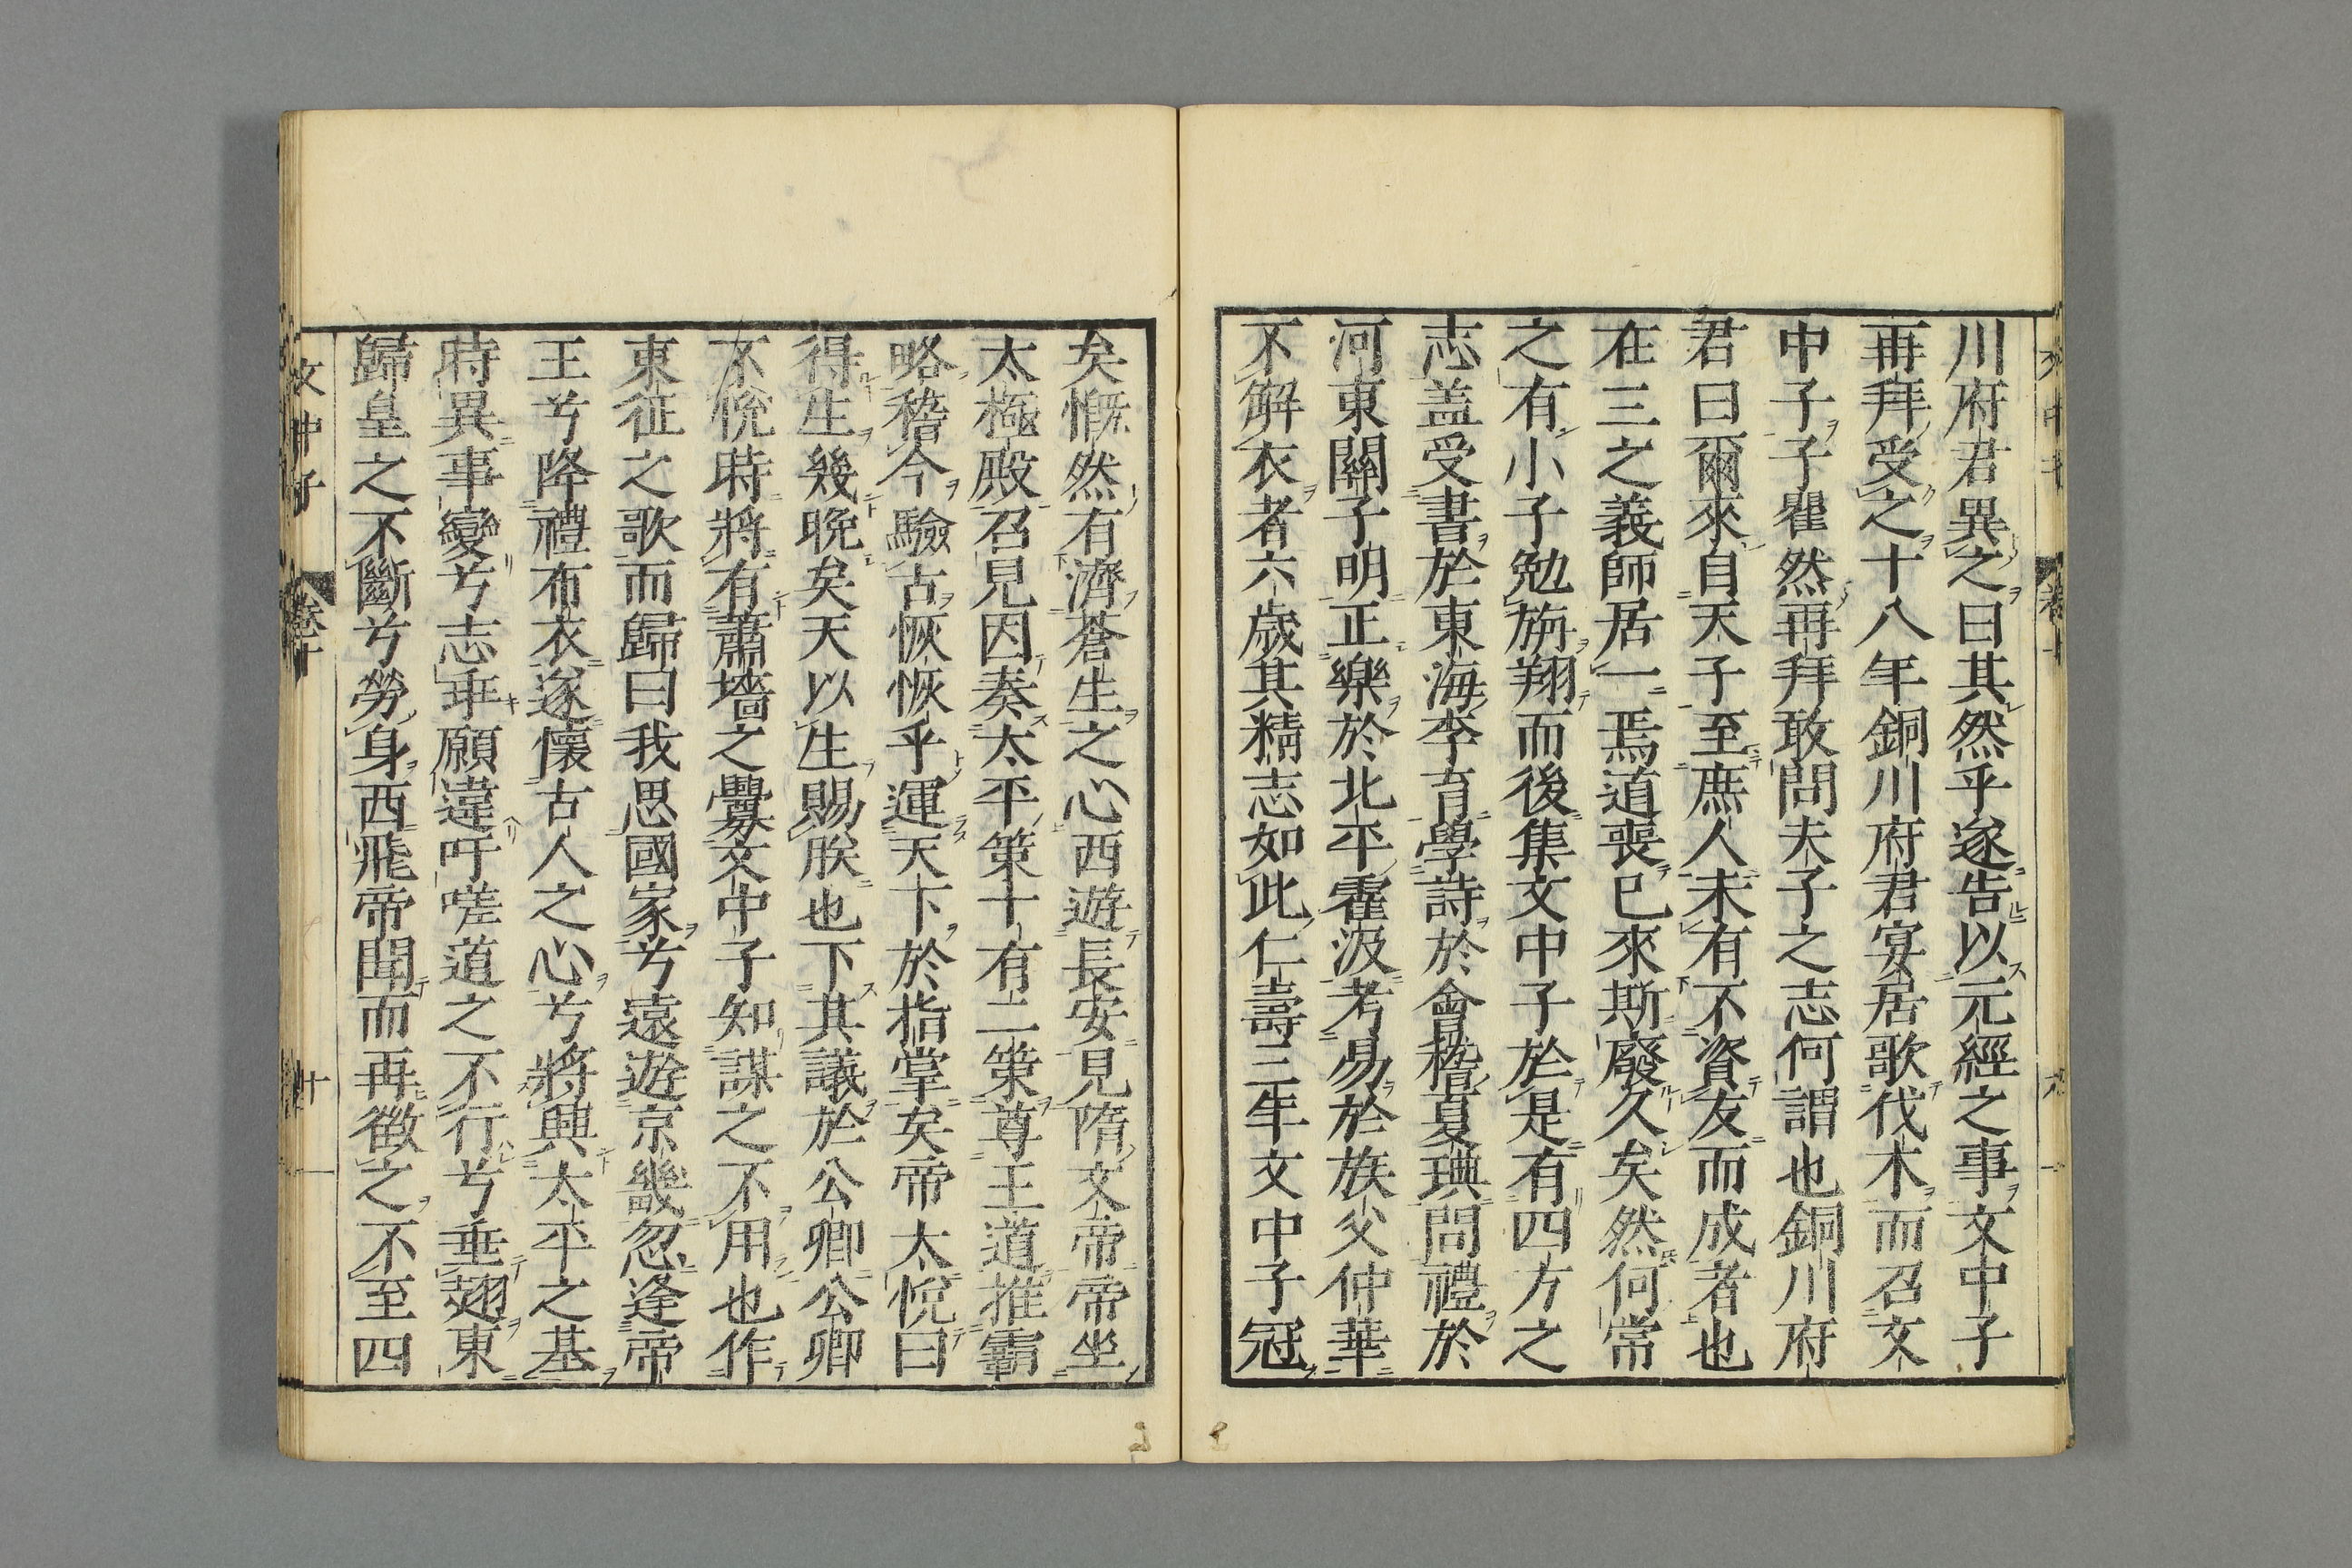 川府君異之曰其然乎遂告以元經之事文中子
再拜受之十八年銅川府君宴居歌伐木而召文
中子子瞿然再拜敢問夫子之志何謂也銅川府
君曰爾來自天子至庶人未有不資友而成者也
在三之義師居一焉道喪已來斯廢久矣然何常
之有小子勉旃翔而後集文中子於是有四方之
志盖受書於東海李育學詩於會稽夏琠問禮於
河東關子明正樂於北平霍汲考易於族父仲華
不解衣者六歳其精志如此仁壽三年文中子冠
矣慨然有濟蒼生之心西遊長安見隋文帝帝坐
太極殿召見因奏太平策十有二策尊王道推霸
略稽今驗古恢恢乎運天下於指掌矣帝太悅曰
得生幾晚矣天以生賜朕也下其議於公卿公卿
不悅時將有蕭墻之釁文中子知謀之不用也作
東征之歌而歸曰我思國家兮遠遊京畿忽逢帝
王兮降禮布衣遂懷古人之心兮將興太平之基
時異事變兮志乖願違吁嗟道之不行兮垂翅東
歸皇之不斷兮勞身西飛帝聞而再徵之不至四
文中子
卷十
十一